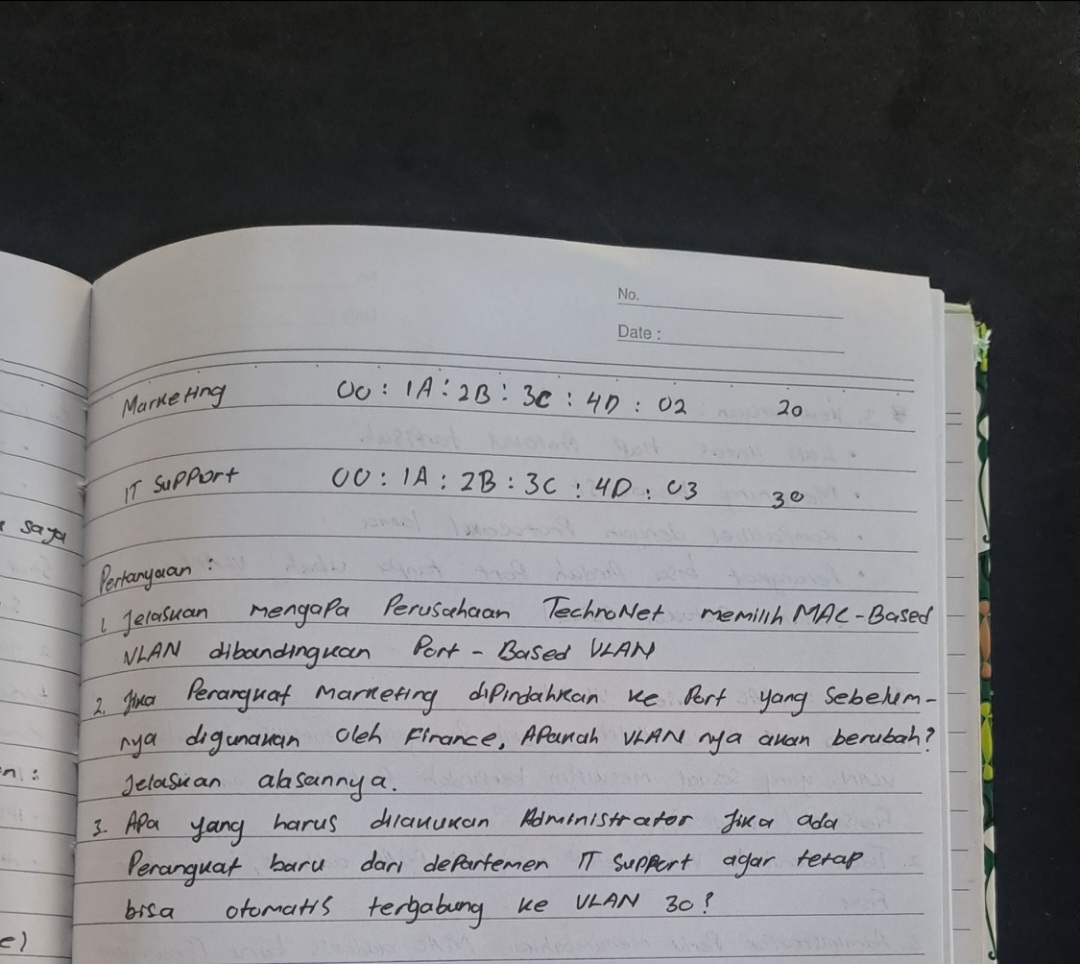 No.
Date :
Marketing 00 : 1A : 2B : 3C : 4D : 02 20
IT Support 00 : 1A : 2B : 3C : 4D : 03 30
saya
Pertanyaan :
1. Jelaskan mengapa Perusahaan TechnoNet memilih MAC-Based
VLAN dibandingkan Port - Based VLAN
2. Jika Perangkat Marketing dipindahkan ke Port yang Sebelum-
nya digunakan oleh Finance, Apakah VLAN nya akan berubah?
Jelaskan alasannya.
3. Apa yang harus dilakukan Administrator Jika ada
Perangkat baru dari departemen IT Support agar tetap
bisa otomatis tergabung ke VLAN 30?